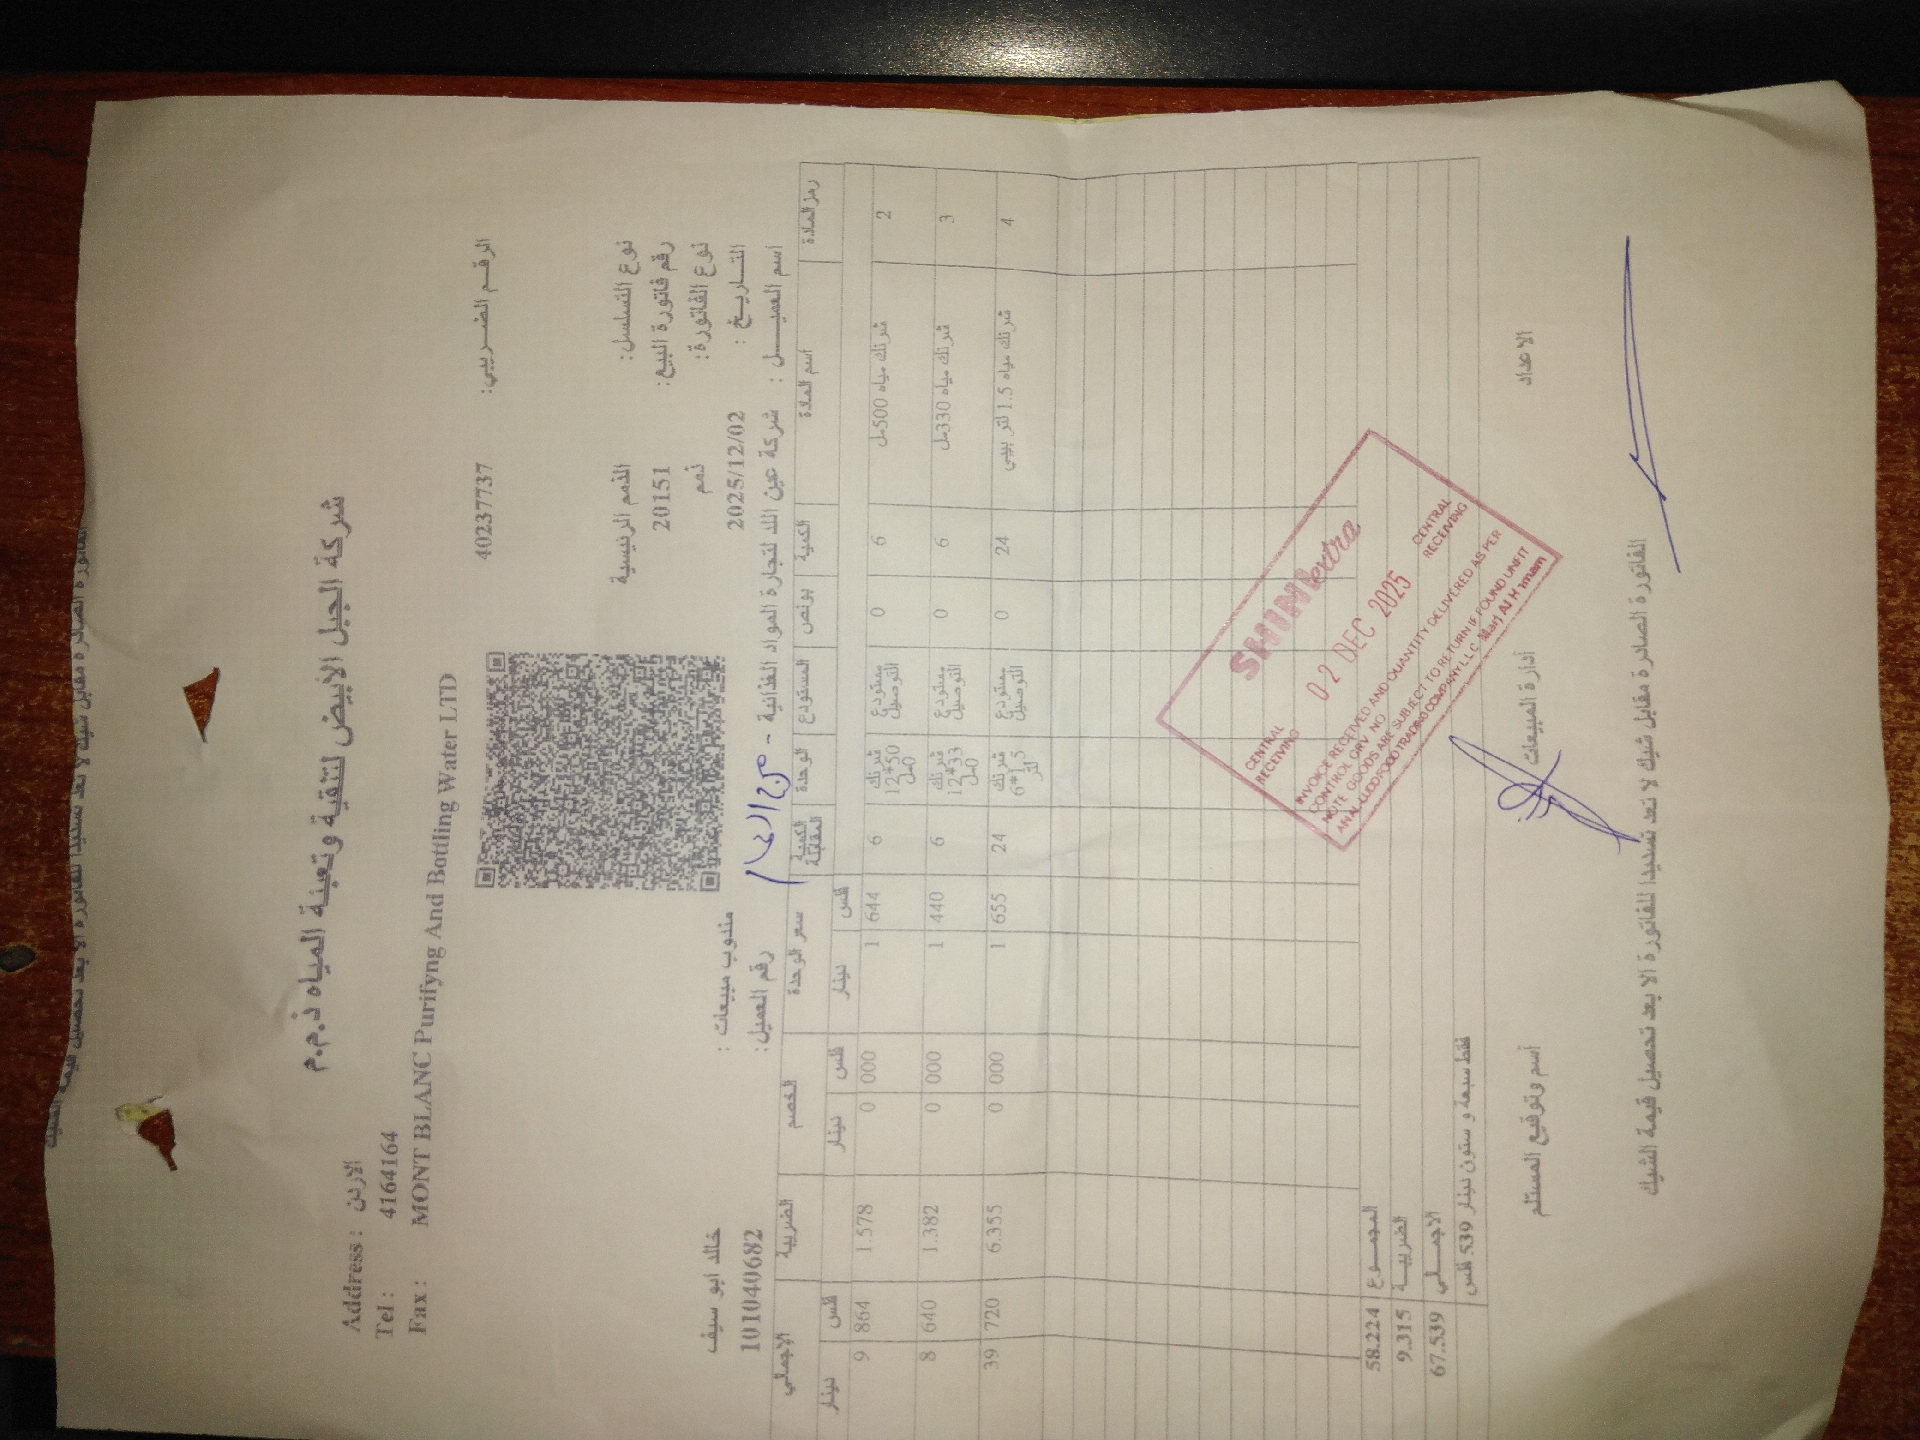 الفاتورة الصادرة مقابل شيك لا تعد تسديدا للفاتورة الا بعد تحصيل قيمة الشيك
شركة الجبل الابيض لتنقية وتعبئة المياه ذ.م.م
Address : الاردن
Tel : 4164164
Fax :
MONT BLANC Purifyng And Bottling Water LTD
الرقم الضريبي: 40237737
نوع التسلسل: الذمم الرئيسية
رقم فاتورة البيع: 20151
نوع الفاتورة: ذمم
التاريخ : 2025/12/02
مندوب مبيعات : خالد ابو سيف
اسم العميل : شركة عين اللد لتجارة المواد الغذائية - مرج الحمام
رقم العميل: 101040682
رمز المادة اسم المادة الكمية بونص المستودع الوحدة الكمية المقابلة سعر الوحدة الخصم الضريبة الإجمالي
دينار فلس دينار فلس دينار فلس
2 شرنك مياه 500مل 6 0 مستودع التوصيل شرنك 12*500مل 6 1 644 0 000 1.578 9 864
3 شرنك مياه 330مل 6 0 مستودع التوصيل شرنك 12*330مل 6 1 440 0 000 1.382 8 640
4 شرنك مياه 1.5 لتر بيبي 24 0 مستودع التوصيل شرنك 6*1.5 لتر 24 1 655 0 000 6.355 39 720
المجموع 58.224
الضريبة 9.315
الاجمالي 67.539
فقط سبعة و ستون دينار 539 فلس
CENTRAL RECEIVING
02 DEC 2025
CENTRAL RECEIVING
INVOICE RECEIVED AND QUANTITY DELIVERED AS PER
CONTROL GRV. NO
NOTE GOODS ARE SUBJECT TO RETURN IF FOUND UNFIT
الاعداد
ادارة المبيعات
اسم وتوقيع المستلم
الفاتورة الصادرة مقابل شيك لا تعد تسديدا للفاتورة الا بعد تحصيل قيمة الشيك